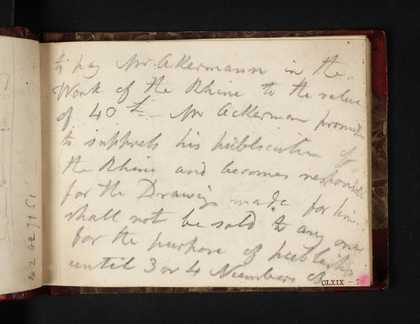 to pay Mr Ackermann in the
Work of the Rhine to the value
of 40 £ - Mr Ackerman promise
to suppress his publication of
the Rhine and becomes responsible
for the Drawings made for him
shall not be sold to any one
for the purpose of publishing
until 3 or 4 Numbers
CLXIX